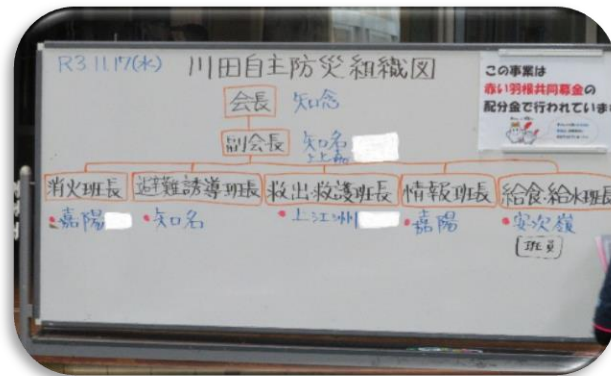 R3.11.17(水) 川田自主防災組織図
会長 知念
副会長 知名
上嘉
消火班長 避難誘導班長 救出・救護班長 情報班長 給食・給水班長
・嘉陽 ・知名 ・上江洲 ・嘉陽 ・安次嶺
班員
この事業は
赤い羽根共同募金の
配分金で行われていま